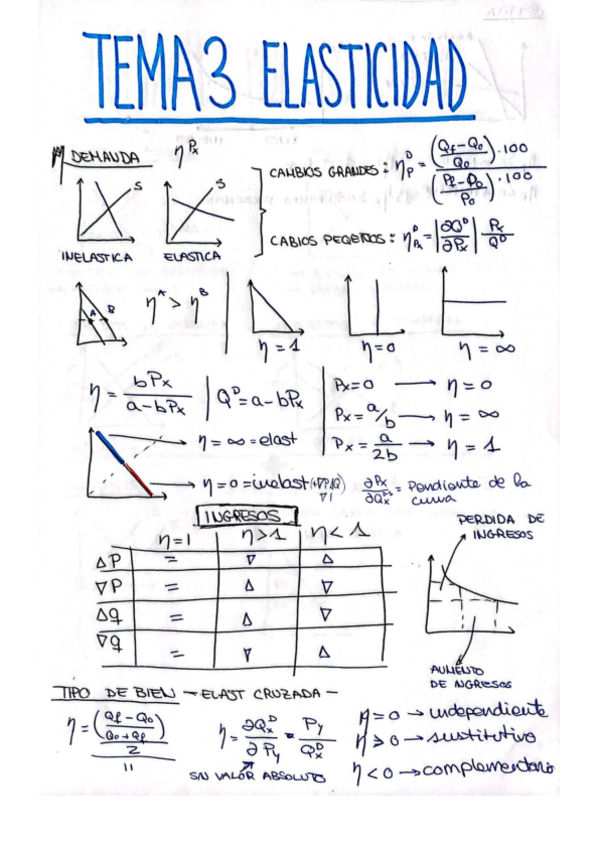 TEMA 3 ELASTICIDAD
η DEMAUDA η Px
CAMBIOS GRANDES: η D P = ((Qf-Qo)/Qo)·100 / ((Pf-Po)/Po)·100
S S
INELASTICA ELASTICA
CABIOS PEQEÑOS: η D Px = |∂Q^D/∂Px| Px/Q^D
A B η^A > η^B
η = 1 η = 0 η = ∞
η = bPx/(a-bPx) | Q^D = a-bPx
Px=0 → η = 0
Px = a/b → η = ∞
Px = a/2b → η = 1
→ η = ∞ = elast
→ η = 0 = inelast ∂Px/∂Qx = Pendiente de la curva
INGRESOS
η=1 η>1 η<1
ΔP = ∇ Δ
∇P = Δ ∇
Δq = Δ ∇
∇q = ∇ Δ
PERDIDA DE INGRESOS
AUMENTO DE INGRESOS
TIPO DE BIEN - ELAST CRUZADA -
η = ((Qf-Qo)/((Qo+Qf)/2)) / "
η = ∂Qx^D/∂Py = Py/Qx^D
SIN VALOR ABSOLUTO
η = 0 → independiente
η > 0 → sustitutivo
η < 0 → complementario